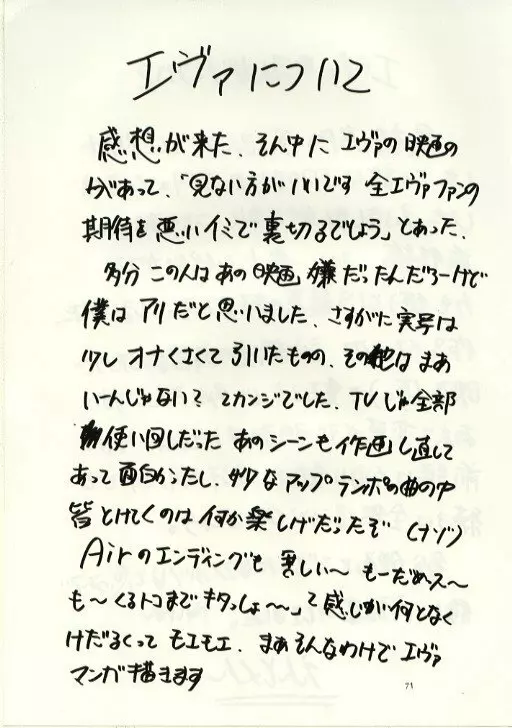 エヴァについて
感想が来た、そん中にエヴァの映画の
分があって、「見ない方がいいです 全エヴァファンの
期待を悪いイミで裏切るでしょう」とあった、
多分 この人はあの映画 嫌だったんだろーけど
僕は アリだと思いました、さすがに実写は
少し オナくさくて引いたものの、その他はまあ
いーんじゃない? てカンジでした、TVじゃ全部
使い回しだった あのシーンも作画し直して
あって面白かったし、妙なアップテンポの曲の中
皆とけてくのは何か楽しげだったぞ (ナゾ)
Airのエンディングも 美しい〜 もーだめっス〜
も〜くるトコまでキタっしょ〜〜」て感じが何となく
けだるくってモエモエ、まあそんなわけでエヴァ
マンガ描きます
71